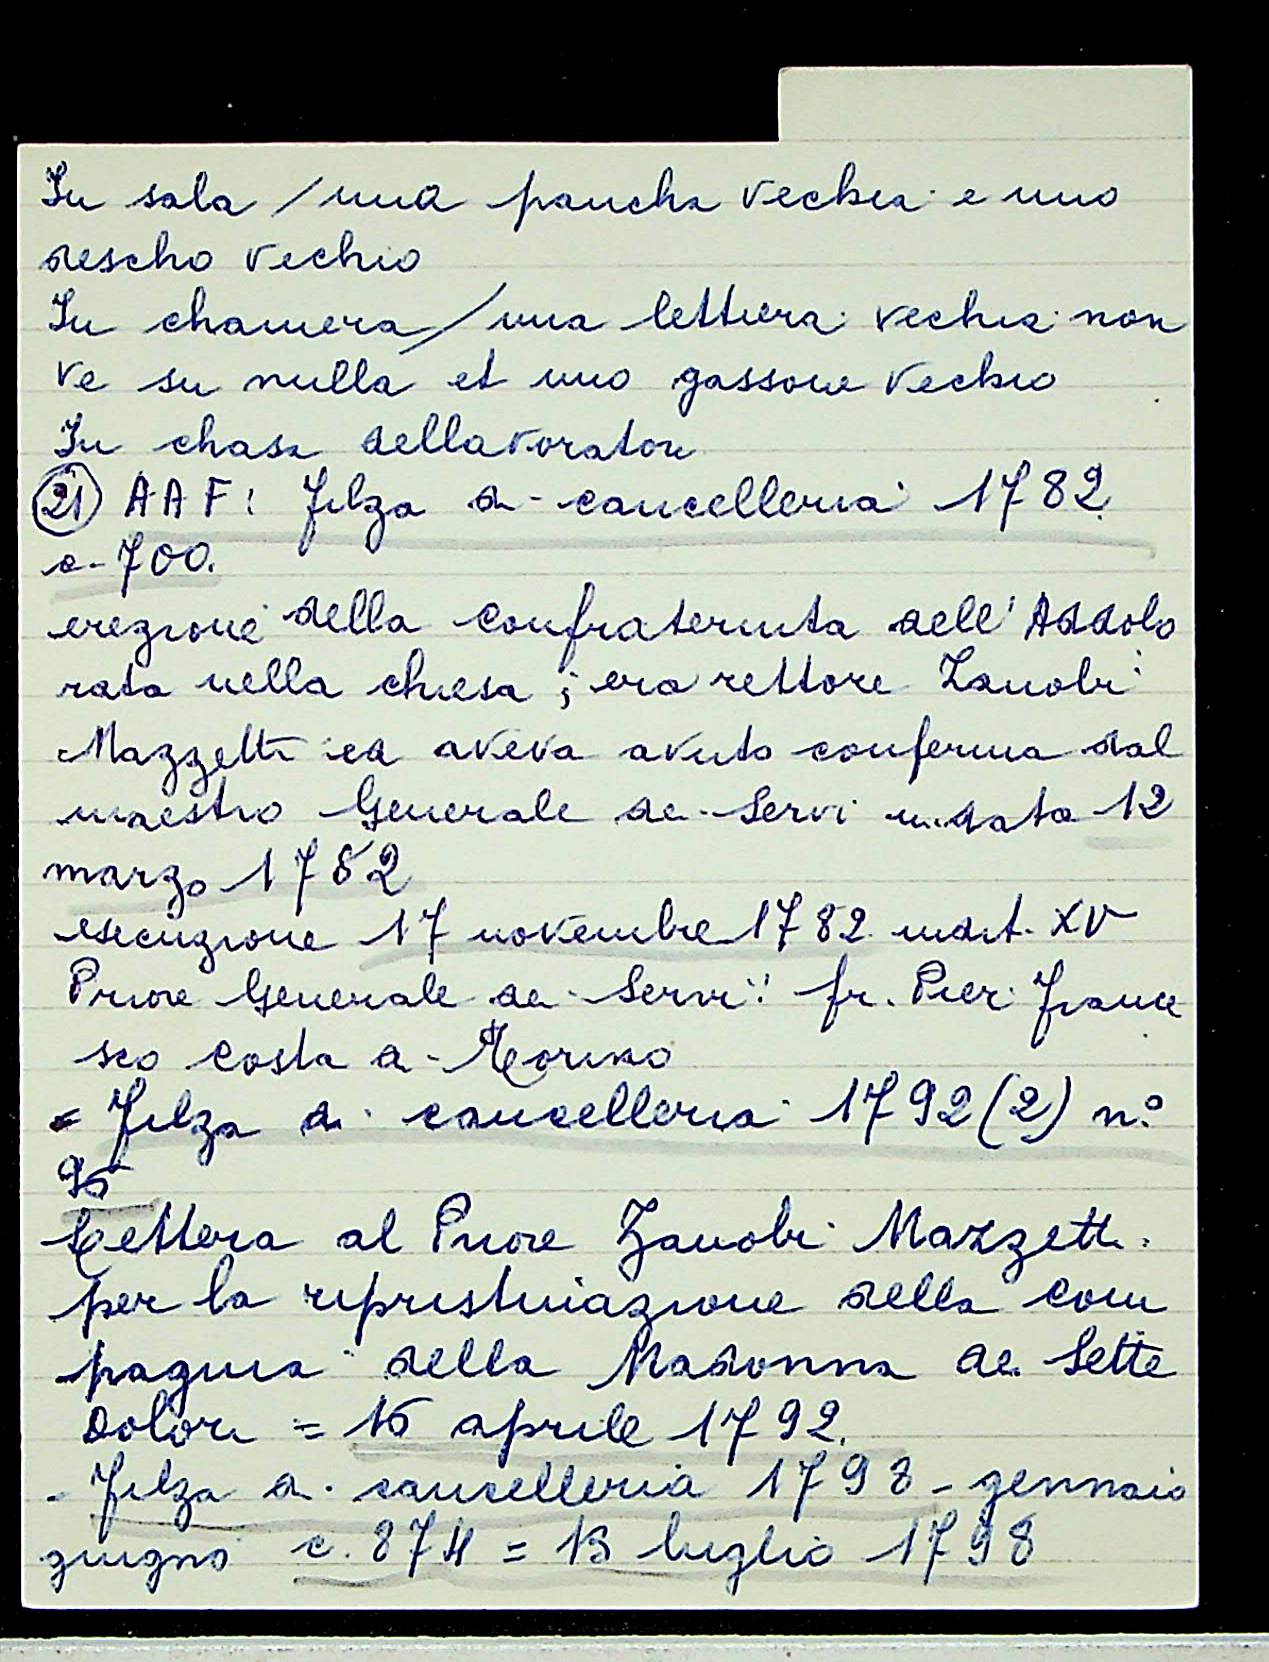 In sala / una pancha vechia e uno
descho vechio
In chamera / una lettiera vechia non
ve su nulla et uno gassone vechio
In chasa dellavoratore
(21) AAF: Filza di cancelleria 1782
c. 700.
erezione della confraternita dell'Addolo
rata nella chiesa; era rettore Zanobi
Mazzetti ed aveva avuto conferma dal
maestro Generale dei Servi in data 12
marzo 1782
esecuzione 17 novembre 1782 indit. XV
Priore Generale dei Servi: fr. Pier France
sco Costa di
= Filza di cancelleria 1792 (2) n.°
95
Lettera al Priore Zanobi Mazzetti
per la ripristinazione della com
pagnia della Madonna dei Sette
Dolori = 15 aprile 1792.
- Filza di cancelleria 1798 - gennaio
giugno c. 874 = 15 luglio 1798